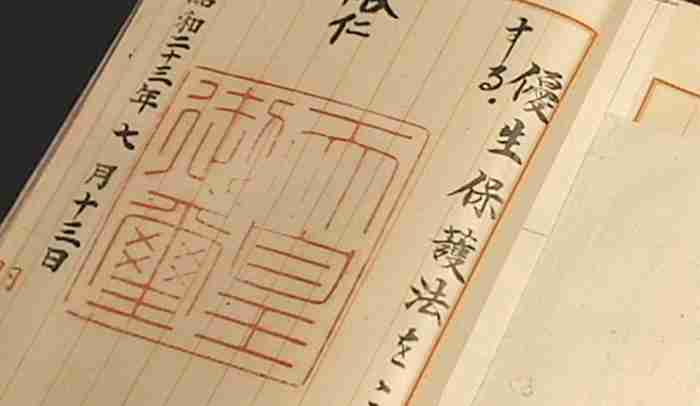 優生保護法をこ
する。
裕仁
天皇
御璽
昭和二十三年七月十三日